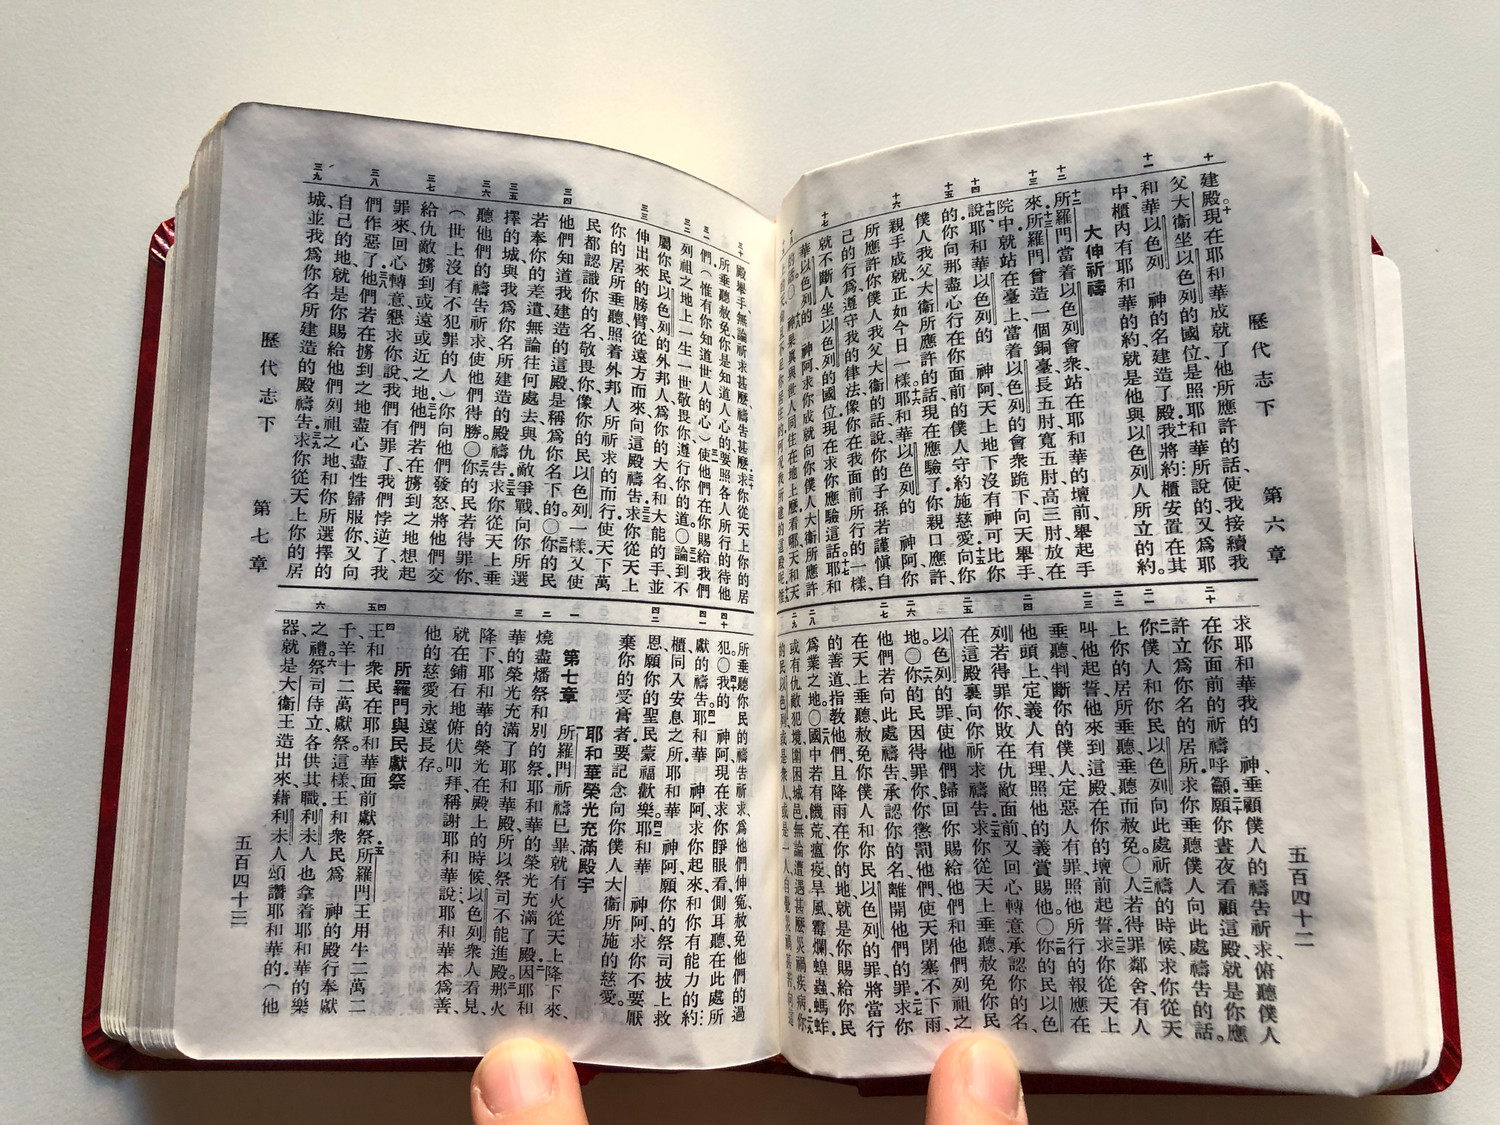 歷代志下 第六章 五百四十二
十
十一
十二
十三
十四
十五
十六
十七
建殿。現在耶和華成就了他所應許的話、使我接續我
父大衛坐以色列的國位、是照耶和華所說的、又爲耶
和華以色列 神的名建造了殿。我將約櫃安置在其
中、櫃內有耶和華的約、就是他與以色列人所立的約。
大伸祈禱
所羅門當着以色列會衆、站在耶和華的壇前、舉起手
來。所羅門曾造一個銅臺、長五肘、寬五肘、高三肘、放在
院中、就站在臺上、當着以色列的會衆跪下、向天舉手、
說、耶和華以色列的 神阿、天上地下沒有神可比你
的、你向那盡心行在你面前的僕人守約施慈愛、向你
僕人我父大衛所應許的話、現在應驗了、你親口應許、
親手成就、正如今日一樣。耶和華以色列的 神阿、你
所應許你僕人我父大衛的話說、你的子孫若謹愼自
己的行爲、遵守我的律法、像你在我面前所行的一樣、
就不斷人坐以色列的國位、現在求你應驗這話。耶和
華以色列的 神阿、求你成就向你僕人大衛所應許
的話。○ 神果眞與世人同住在地上麼、看哪、天和天
二十
二一
二二
二三
二四
二五
二六
二七
二八
二九
求耶和華我的 神、垂顧僕人的禱告祈求、俯聽僕人
在你面前的祈禱呼籲。願你晝夜看顧這殿、就是你應
許立爲你名的居所、求你垂聽僕人向此處禱告的話。
你僕人和你民以色列向此處祈禱的時候、求你從天
上你的居所垂聽、垂聽而赦免。○人若得罪鄰舍、有人
叫他起誓、他來到這殿在你的壇前起誓、求你從天上
垂聽、判斷你的僕人、定惡人有罪、照他所行的報應在
他頭上、定義人有理、照他的義賞賜他。○你的民以色
列若得罪你、敗在仇敵面前、又回心轉意承認你的名、
在這殿裏向你祈求禱告、求你從天上垂聽、赦免你民
以色列的罪、使他們歸回你賜給他們和他們列祖之
地。○你的民因得罪你、你懲罰他們、使天閉塞不下雨、
他們若向此處禱告、承認你的名、離開他們的罪、求你
在天上垂聽、赦免你僕人和你民以色列的罪、將當行
的善道指教他們、且降雨在你的地、就是你賜給你民
爲業之地。○國中若有饑荒、瘟疫、旱風、霉爛、蝗蟲、螞蚱、
或有仇敵犯境、圍困城邑、無論遭遇甚麼災禍疾病、你
歷代志下 第七章 五百四十三
三十
三一
三二
三三
三四
三五
三六
三七
三八
三九
殿舉手、無論祈求甚麼、禱告甚麼、求你從天上你的居
所垂聽赦免、你是知道人心的、要照各人所行的待他
們、（惟有你知道世人的心）使他們在你賜給我們
列祖之地上、一生一世敬畏你、遵行你的道。○論到不
屬你民以色列的外邦人、爲你的大名和大能的手並
伸出來的膀臂、從遠方而來、向這殿禱告、求你從天上
你的居所垂聽、照着外邦人所祈求的而行、使天下萬
民都認識你的名、敬畏你、像你的民以色列一樣、又使
他們知道我建造的這殿、是稱爲你名下的。○你的民
若奉你的差遣、無論往何處去與仇敵爭戰、向你所選
擇的城與我爲你名所建造的殿禱告、求你從天上垂
聽他們的禱告祈求、使他們得勝。○你的民若得罪你、
（世上沒有不犯罪的人）你向他們發怒、將他們交
給仇敵擄到或遠或近之地、他們若在擄到之地想起
罪來、回心轉意、懇求你說、我們有罪了、我們悖逆了、我
們作惡了、他們若在擄到之地、盡心盡性歸服你、又向
自己的地、就是你賜給他們列祖之地、和你所選擇的
城、並我爲你名所建造的殿禱告、求你從天上你的居
四十
四一
四二
一
二
三
四
五
六
所垂聽你民的禱告祈求、爲他們伸冤、赦免他們的過
犯。○我的 神阿、現在求你睜眼看、側耳聽在此處所
獻的禱告。耶和華 神阿、求你起來、和你有能力的約
櫃同入安息之所、耶和華 神阿、願你的祭司披上救
恩、願你的聖民蒙福歡樂。耶和華 神阿、求你不要厭
棄你的受膏者、要記念向你僕人大衛所施的慈愛。
第七章
耶和華榮光充滿殿宇
所羅門祈禱已畢、就有火從天上降下來、
燒盡燔祭和別的祭、耶和華的榮光充滿了殿。因耶和
華的榮光充滿了耶和華殿、所以祭司不能進殿。那火
降下、耶和華的榮光在殿上的時候、以色列衆人看見、
就在鋪石地俯伏叩拜、稱謝耶和華說、耶和華本爲善、
他的慈愛永遠長存。
所羅門與民獻祭
王和衆民在耶和華面前獻祭。所羅門王用牛二萬二
千、羊十二萬獻祭、這樣、王和衆民爲 神的殿行奉獻
之禮。祭司侍立、各供其職、利未人也拿着耶和華的樂
器、就是大衛王造出來、藉利未人頌讚耶和華的、（他